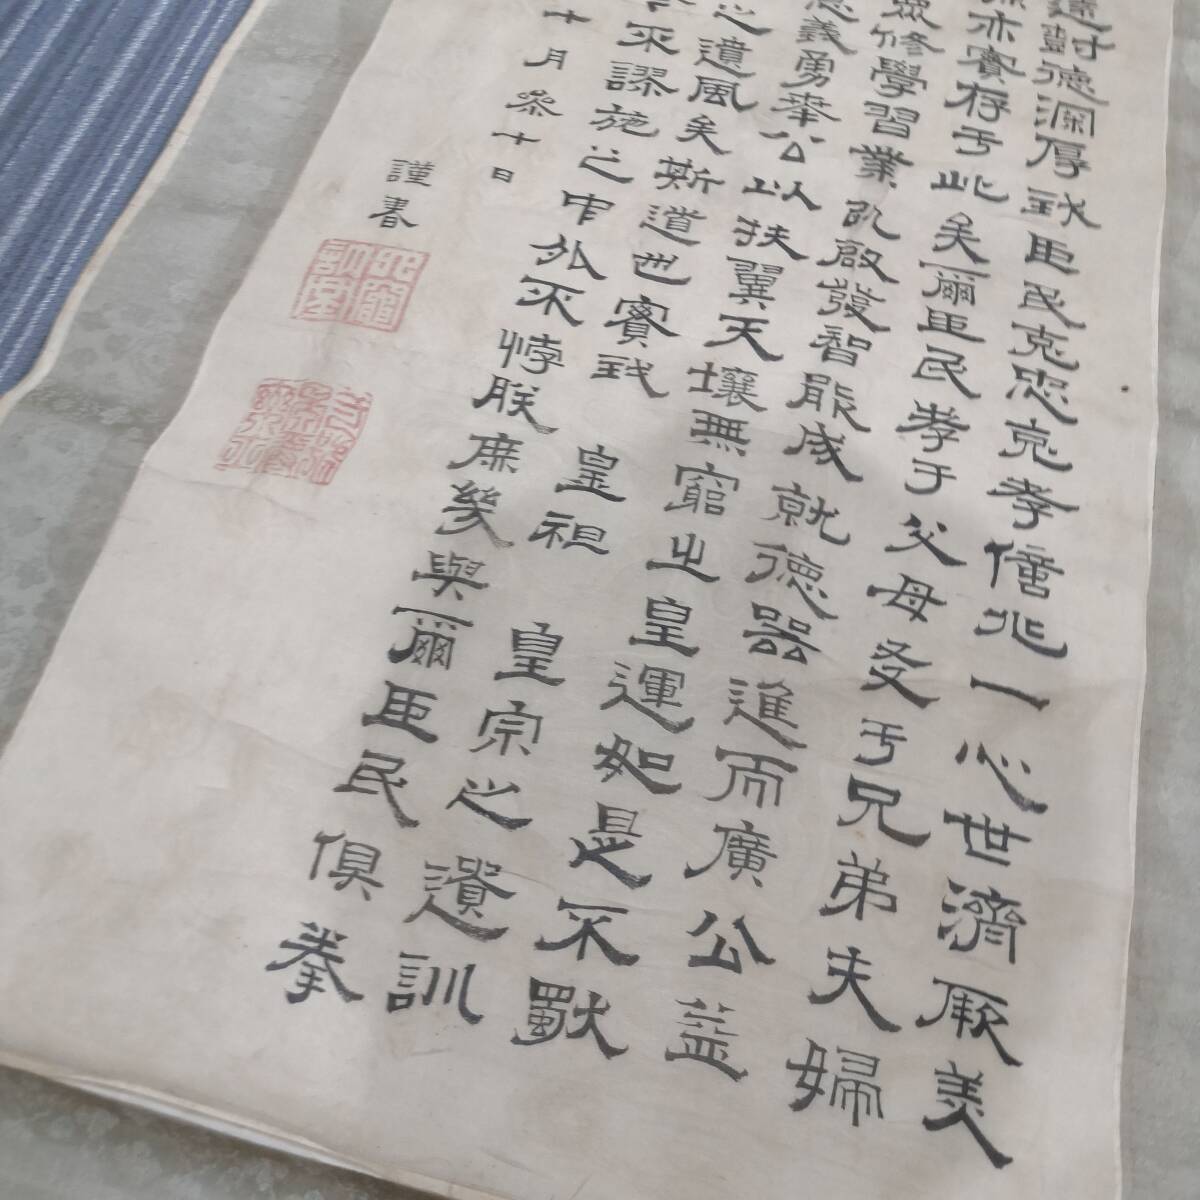 遠尌德深厚我臣民克忠克孝億兆一心世濟厥美
亦實存于此矣爾臣民孝于父母友于兄弟夫婦
修學習業以啟發智能成就德器進而廣公益
義勇奉公以扶翼天壤無窮之皇運如是不獨
之遺風矣斯道也實我 皇祖 皇宗之遺訓
不謬施之中外不悖朕庶幾與爾臣民俱拳
十月參十日
謹書